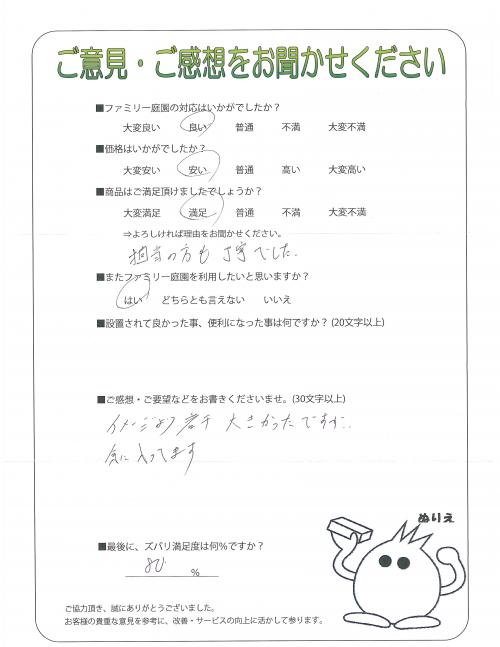 ご意見・ご感想をお聞かせください
■ファミリー庭園の対応はいかがでしたか？
大変良い 良い 普通 不満 大変不満
■価格はいかがでしたか？
大変安い 安い 普通 高い 大変高い
■商品はご満足頂けましたでしょうか？
大変満足 満足 普通 不満 大変不満
⇒よろしければ理由をお聞かせください。
担当の方も丁寧でした。
■またファミリー庭園を利用したいと思いますか？
はい どちらとも言えない いいえ
■設置されて良かった事、便利になった事は何ですか？(20文字以上)
■ご感想・ご要望などをお書きくださいませ。(30文字以上)
イメージより若干 大きかったですが、
気に入ってます
ぬりえ
■最後に、ズバリ満足度は何％ですか？
80 ％
ご協力頂き、誠にありがとうございました。
お客様の貴重な意見を参考に、改善・サービスの向上に活かして参ります。